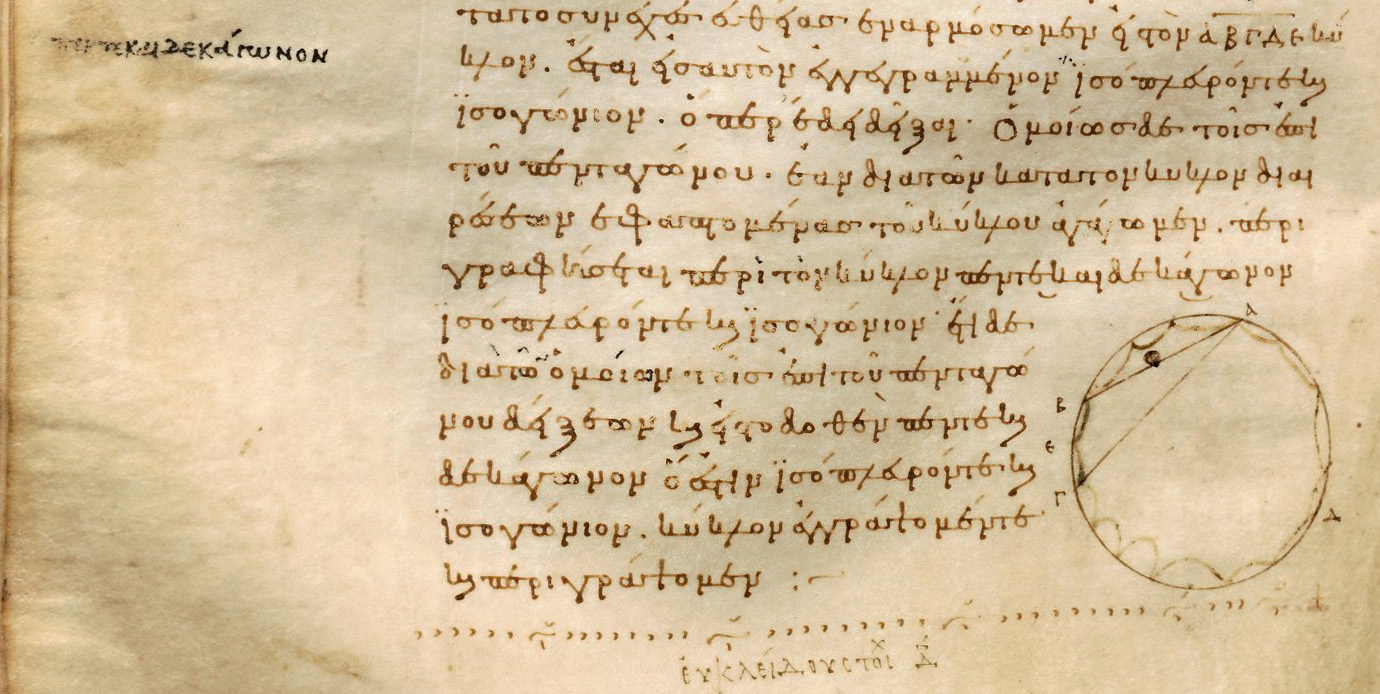 πεντεκαιδεκάγωνον
τὰ τὸ συνεχὲς εὐθείας ἐναρμόσωμεν εἰς τὸν ΑΒΓΔΕ κύ
κλον. ἔσται εἰς αὐτὸν ἐγγεγραμμένον ἰσόπλευρόν τε καὶ
ἰσογώνιον. ὅπερ ἔδει δεῖξαι. Ὁμοίως δὲ τοῖς ἐπὶ
τοῦ πενταγώνου. ἐὰν διὰ τῶν κατὰ τὸν κύκλον διαι
ρέσεων ἐφαπτομένας τοῦ κύκλου ἀγάγωμεν. περι
γραφήσεται περὶ τὸν κύκλον πεντεκαιδεκάγωνον
ἰσόπλευρόν τε καὶ ἰσογώνιον ἔτι δὲ
διὰ τῶν ὁμοίων τοῖς ἐπὶ τοῦ πενταγώ
νου δείξεων καὶ εἰς τὸ δοθὲν πεντεκαι
δεκάγωνον ὅ ἐστιν ἰσόπλευρόν τε καὶ
ἰσογώνιον. κύκλον ἐγγράψομέν τε
καὶ περιγράψομεν :~
Α
Β
Ε
Γ
Δ
ΕΥΚΛΕΙΔΟΥ ΣΤΟΙΧ Δ